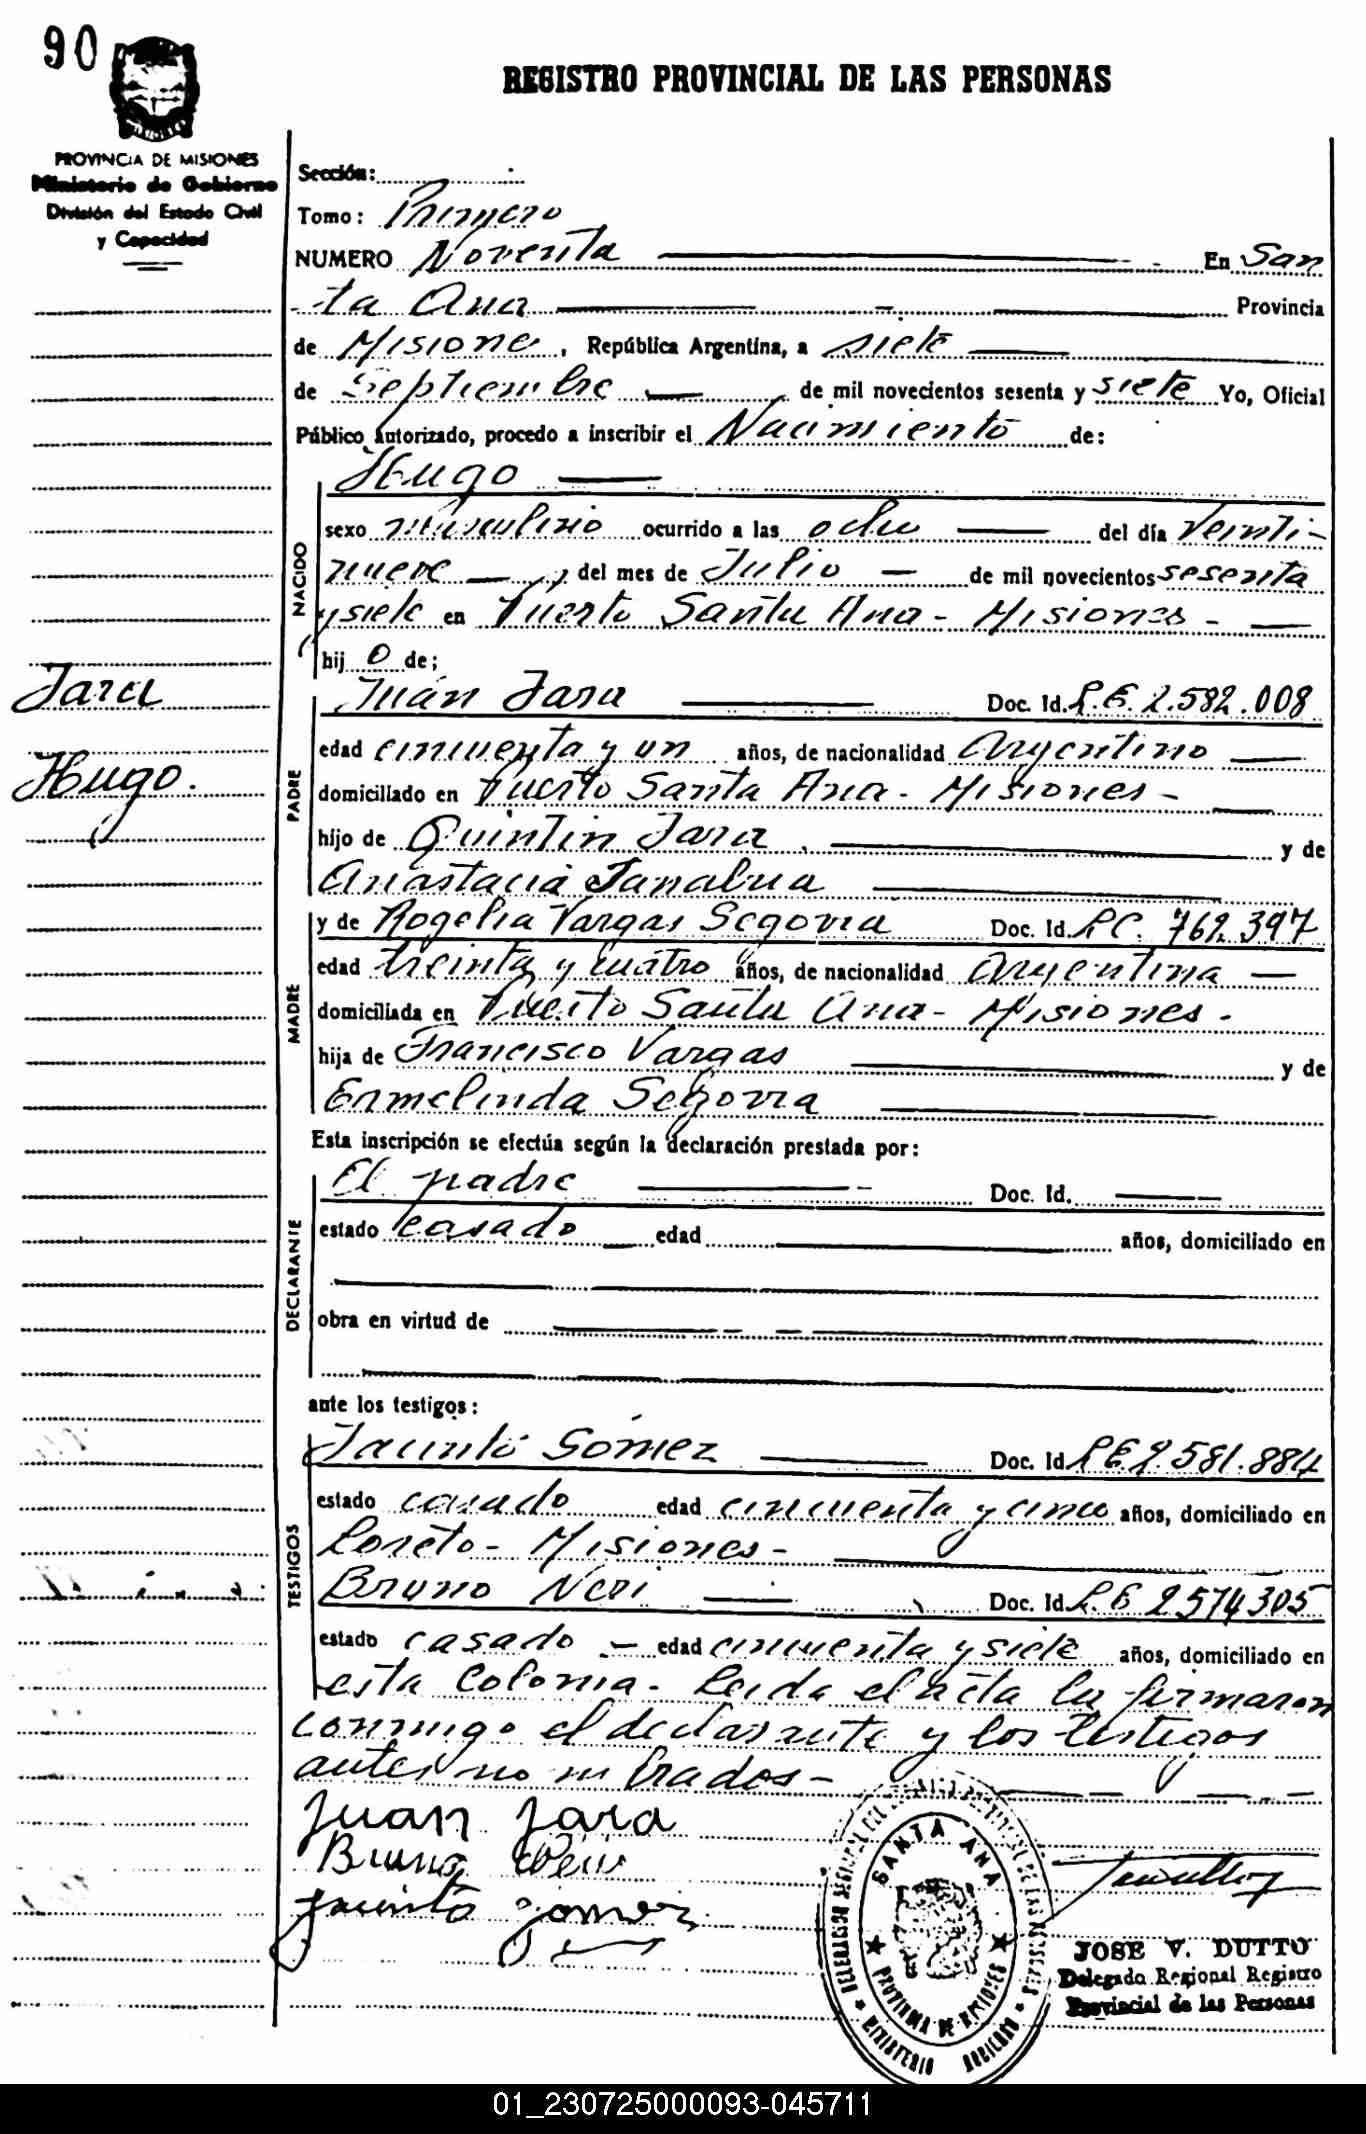 90
REGISTRO PROVINCIAL DE LAS PERSONAS
PROVINCIA DE MISIONES
Ministerio de Gobierno
División del Estado Civil
y Capacidad
Sección:
Tomo: Primero
NUMERO Noventa En San
ta Ana Provincia
de Misiones, República Argentina, a siete
de Septiembre de mil novecientos sesenta y siete Yo, Oficial
Público autorizado, procedo a inscribir el Nacimiento de:
Hugo
NACIDO
sexo masculino ocurrido a las ocho del día Veinti-
nueve del mes de Julio de mil novecientos sesenta
y siete en Puerto Santa Ana - Misiones -
hij o de;
Jara
Hugo.
PADRE
Juán Jara Doc. Id. L.E. 2.582.008
edad cincuenta y un años, de nacionalidad Argentino
domiciliado en Puerto Santa Ana - Misiones -
hijo de Quintin Jara y de
Anastacia
MADRE
y de Rogelia Vargas Segovia Doc. Id. L.C. 762.397
edad treinta y cuatro años, de nacionalidad Argentina
domiciliada en Puerto Santa Ana - Misiones -
hija de Francisco Vargas y de
Ermelinda Segovia
Esta inscripción se efectúa según la declaración prestada por:
DECLARANTE
El padre Doc. Id.
estado casado edad años, domiciliado en
obra en virtud de
ante los testigos:
TESTIGOS
Jacinto Gómez Doc. Id. L.E. 2.581.884
estado casado edad cincuenta y cinco años, domiciliado en
Loreto - Misiones -
Bruno Neri Doc. Id. L.E 2.574305
estado casado - edad cincuenta y siete años, domiciliado en
esta Colonia. Leida el acta la firmaron
conmigo el declarante y los testigos
antes nombrados -
Juan Jara
Bruno Neri
Jacinto Gomez
SANTA ANA
PROVINCIA DE MISIONES
MINISTERIO
JOSE V. DUTTO
Delegado Regional Registro
Provincial de las Personas
01_230725000093-045711